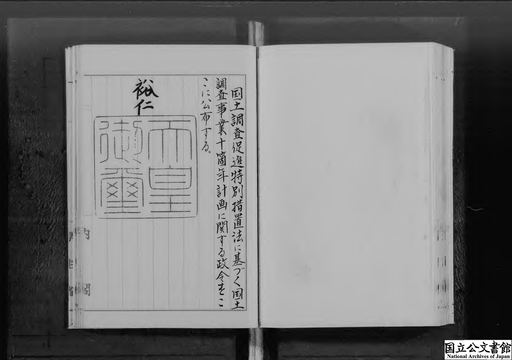 国土調査促進特別措置法に基づく国土
調査事業十箇年計画に関する政令をこ
こに公布する。
裕仁
天皇
御璽
内閣
国立公文書館
National Archives of Japan